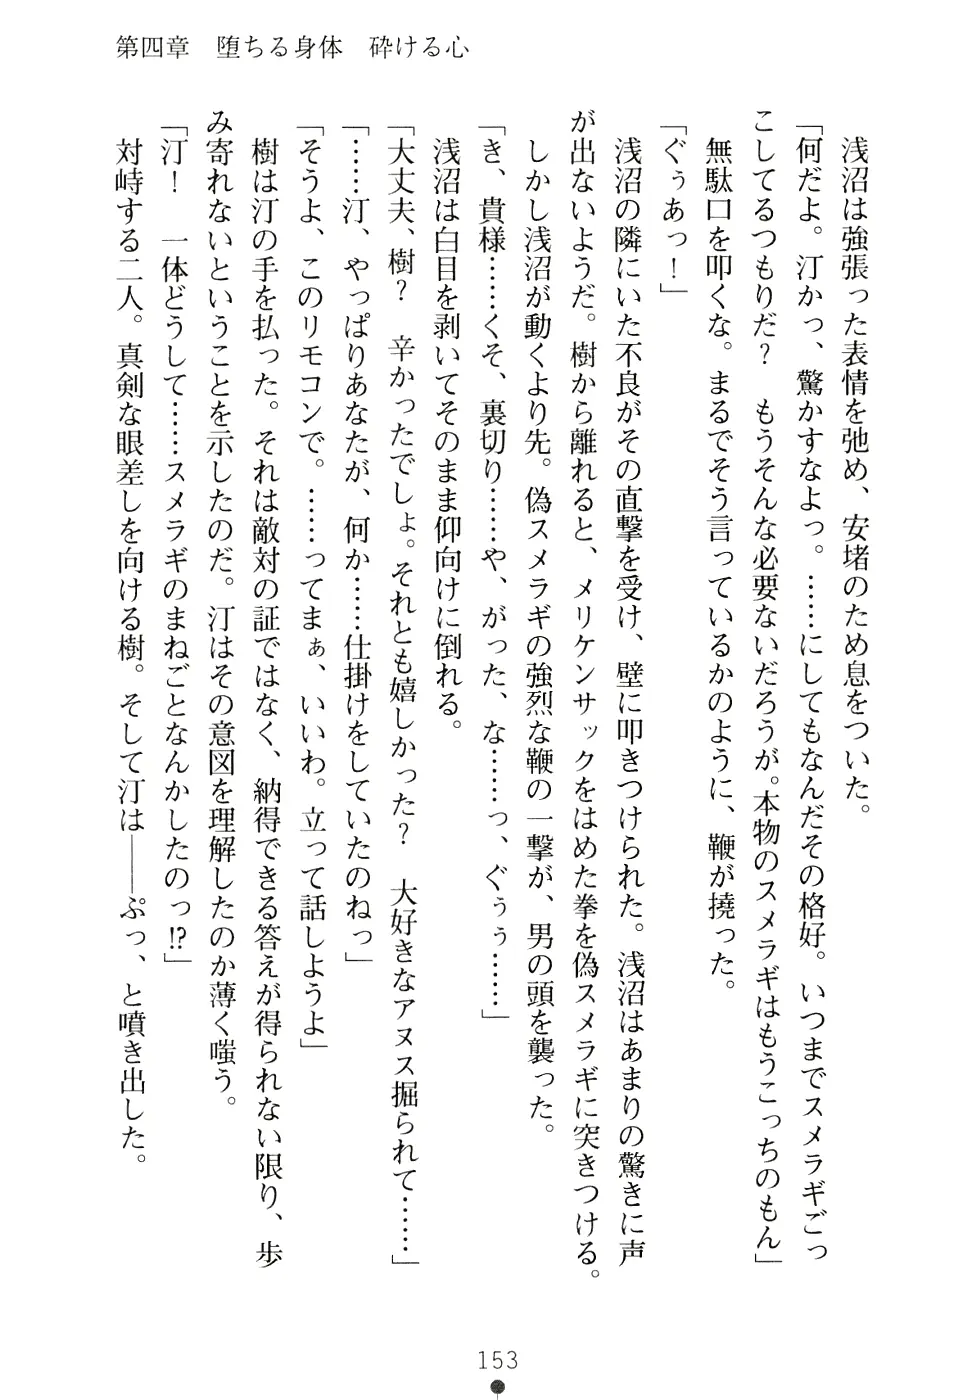 第四章　堕ちる身体　砕ける心
　浅沼は強張った表情を弛め、安堵のため息をついた。
「何だよ。汀かっ、驚かすなよっ。……にしてもなんだその格好。いつまでスメラギごっ
こしてるつもりだ？　もうそんな必要ないだろうが。本物のスメラギはもうこっちのもん」
　無駄口を叩くな。まるでそう言っているかのように、鞭が撓った。
「ぐぅあっ！」
　浅沼の隣にいた不良がその直撃を受け、壁に叩きつけられた。浅沼はあまりの驚きに声
が出ないようだ。樹から離れると、メリケンサックをはめた拳を偽スメラギに突きつける。
　しかし浅沼が動くより先。偽スメラギの強烈な鞭の一撃が、男の頭を襲った。
「き、貴様……くそ、裏切り……や、がった、な……っ、ぐぅぅ……」
　浅沼は白目を剥いてそのまま仰向けに倒れる。
「大丈夫、樹？　辛かったでしょ。それとも嬉しかった？　大好きなアヌス掘られて……」
「……汀、やっぱりあなたが、何か……仕掛けをしていたのねっ」
「そうよ、このリモコンで。……ってまぁ、いいわ。立って話しようよ」
　樹は汀の手を払った。それは敵対の証ではなく、納得できる答えが得られない限り、歩
み寄れないということを示したのだ。汀はその意図を理解したのか薄く嗤う。
「汀！　一体どうして……スメラギのまねごとなんかしたのっ!?」
　対峙する二人。真剣な眼差しを向ける樹。そして汀は――ぷっ、と噴き出した。
153